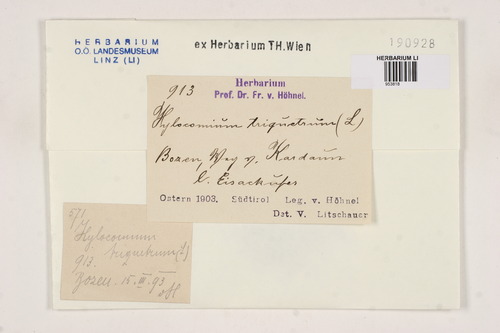 HERBARIUM
O.Ö. LANDESMUSEUM
LINZ (LI)
ex Herbarium TH.Wien
190928
HERBARIUM LI
913
Herbarium
Prof. Dr. Fr. v. Höhnel.
Hylocomium triquetrum (L)
Bozen, Weg v. Kardaun
Eisackufer
Ostern 1903. Südtirol Leg. v. Höhnel
Det. V. Litschauer
Hylocomium
triquetrum (L)
913.
Bozen - 15. III. 93